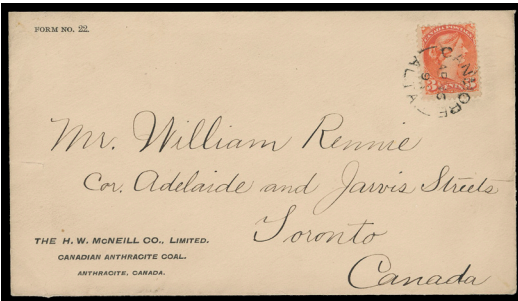 FORM NO. 22.
CANMORE
AP 16
ALTA
Mr. William Rennie
Cor. Adelaide and Jarvis Streets
Toronto
Canada
THE H. W. MCNEILL CO., LIMITED.
CANADIAN ANTHRACITE COAL.
ANTHRACITE, CANADA.